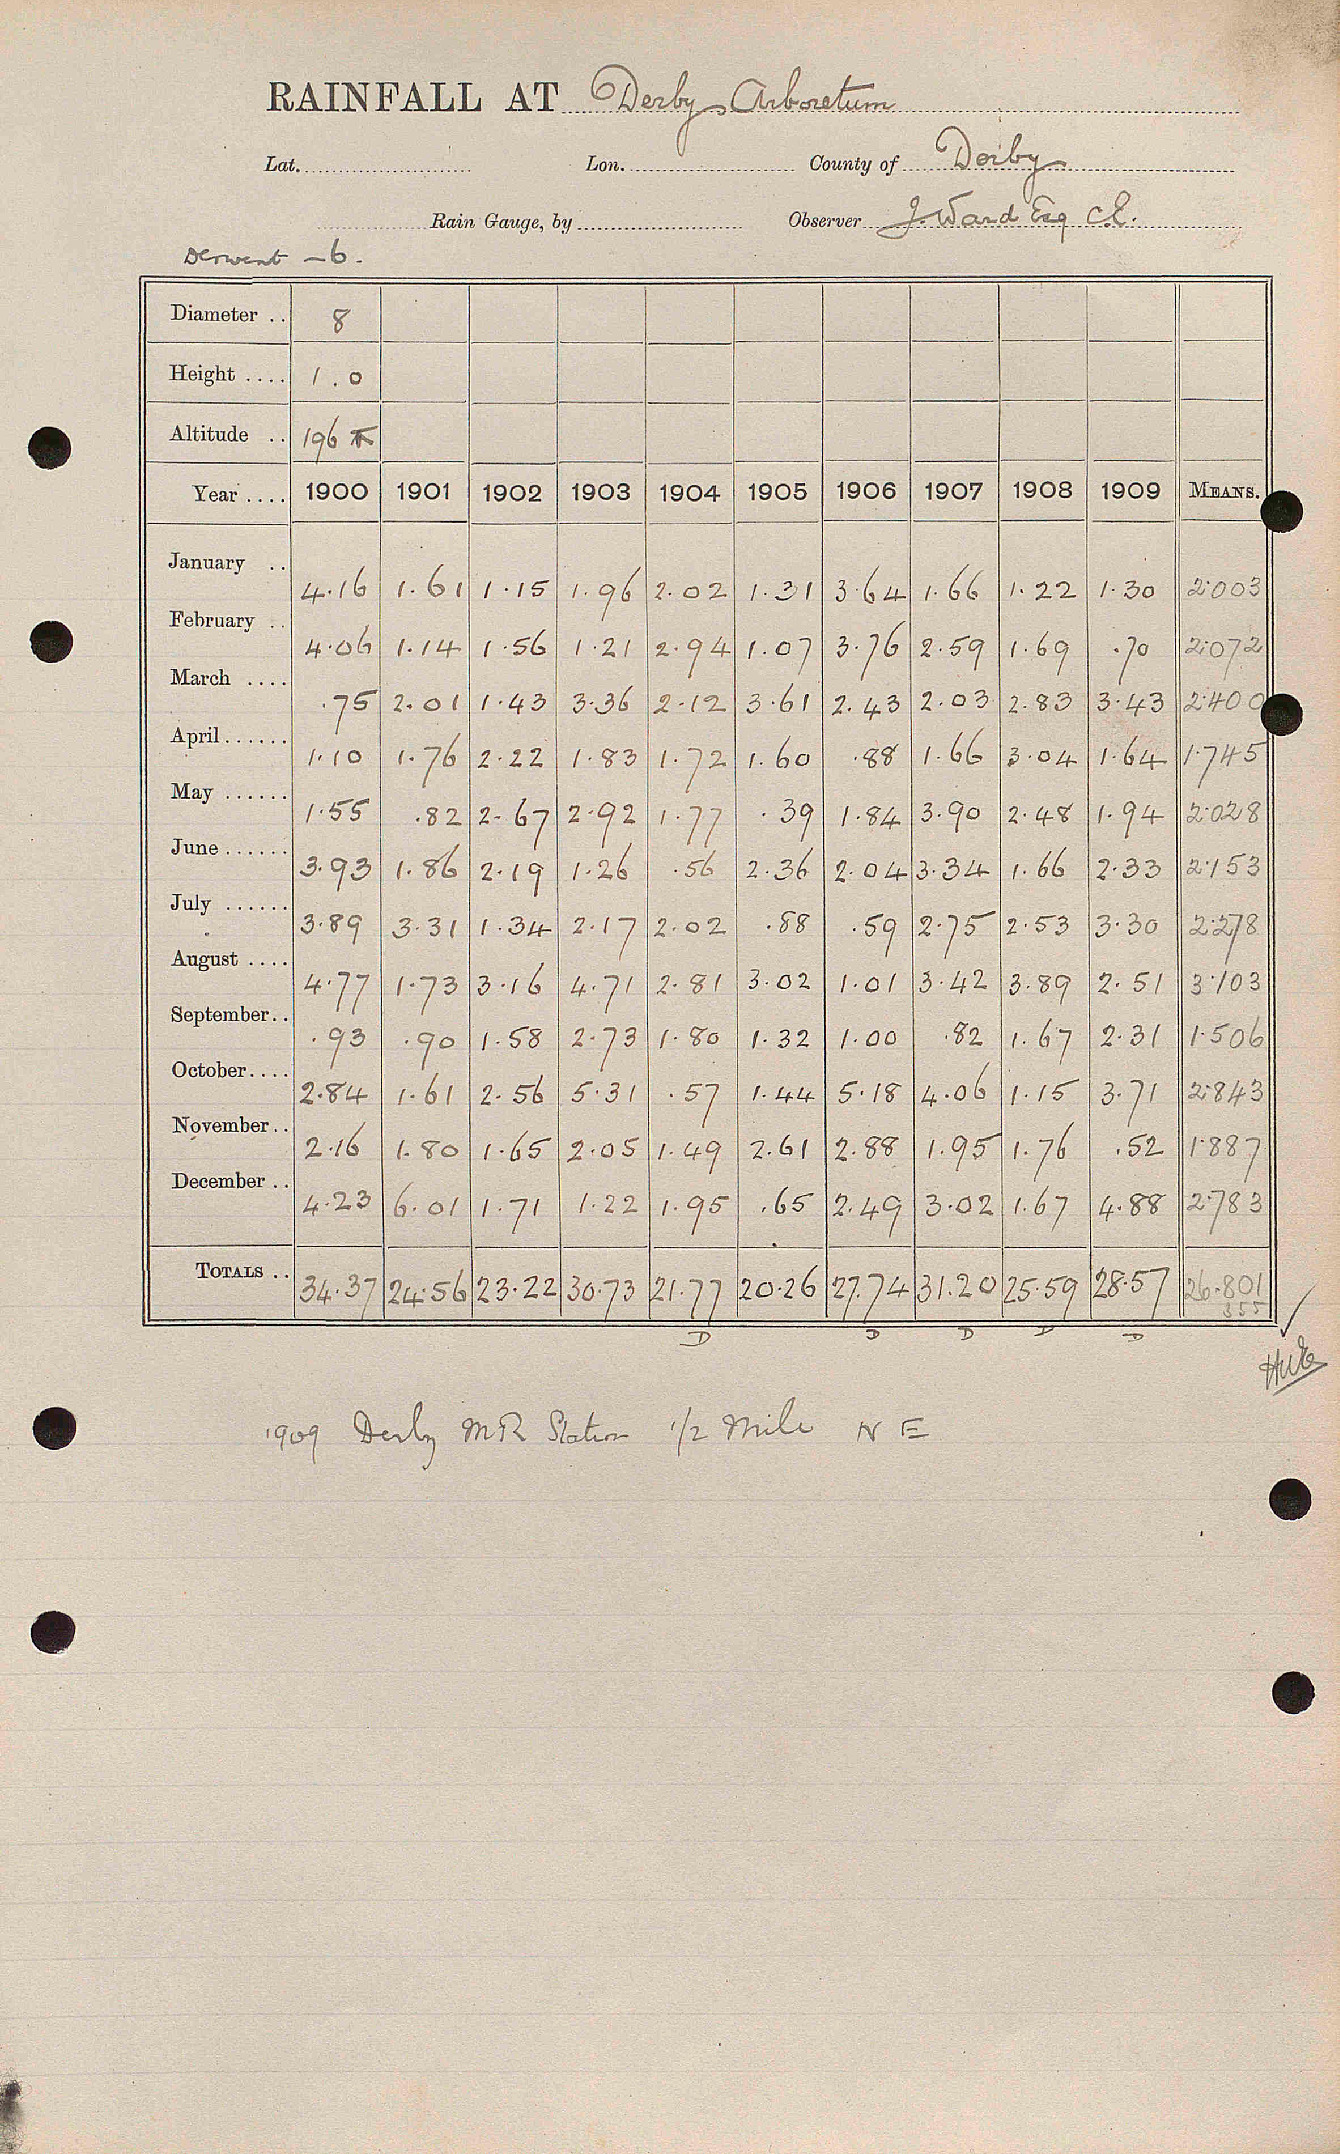 RAINFALL AT Derby Arboretum
Lat. Lon. County of Derby
Rain Gauge, by Observer J. Ward Esq C.E.
Derwent - 6.
Diameter .. 8
Height .... 1.0
Altitude .. 196
Year .... 1900 1901 1902 1903 1904 1905 1906 1907 1908 1909 MEANS.
January .. 4.16 1.61 1.15 1.96 2.02 1.31 3.64 1.66 1.22 1.30 2.003
February .. 4.06 1.14 1.56 1.21 2.94 1.07 3.76 2.59 1.69 .70 2.072
March .... .75 2.01 1.43 3.36 2.12 3.61 2.43 2.03 2.83 3.43 2.400
April...... 1.10 1.76 2.22 1.83 1.72 1.60 .88 1.66 3.04 1.64 1.745
May ...... 1.55 .82 2.67 2.92 1.77 .39 1.84 3.90 2.48 1.94 2.028
June...... 3.93 1.86 2.19 1.26 .56 2.36 2.04 3.34 1.66 2.33 2.153
July ...... 3.89 3.31 1.34 2.17 2.02 .88 .59 2.75 2.53 3.30 2.278
August .... 4.77 1.73 3.16 4.71 2.81 3.02 1.01 3.42 3.89 2.51 3.103
September.. .93 .90 1.58 2.73 1.80 1.32 1.00 .82 1.67 2.31 1.506
October.... 2.84 1.61 2.56 5.31 .57 1.44 5.18 4.06 1.15 3.71 2.843
November.. 2.16 1.80 1.65 2.05 1.49 2.61 2.88 1.95 1.76 .52 1.887
December .. 4.23 6.01 1.71 1.22 1.95 .65 2.49 3.02 1.67 4.88 2.783
TOTALS .. 34.37 24.56 23.22 30.73 21.77 20.26 27.74 31.20 25.59 28.57 26.801
355
D D D D D
1909 Derby MR Station 1/2 Mile N E